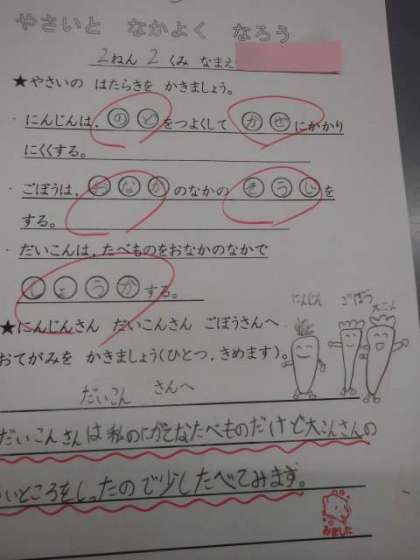 やさいと なかよく なろう
2ねん 2 くみ なまえ
★やさいの はたらきを かきましょう。
・にんじんは、のどをつよくして かぜにかかり
にくくする。
・ごぼうは、おなかのなかの そうじを
する。
・だいこんは、たべものをおなかのなかで
しょうかする。
★にんじんさん だいこんさん ごぼうさんへ
おてがみを かきましょう(ひとつ,きめます)。
にんじん ごぼう 大こん
だいこん さんへ
だいこんさんは私のにがてなたべものだけど大こんさんの
いところをしったので少したべてみます。
みました